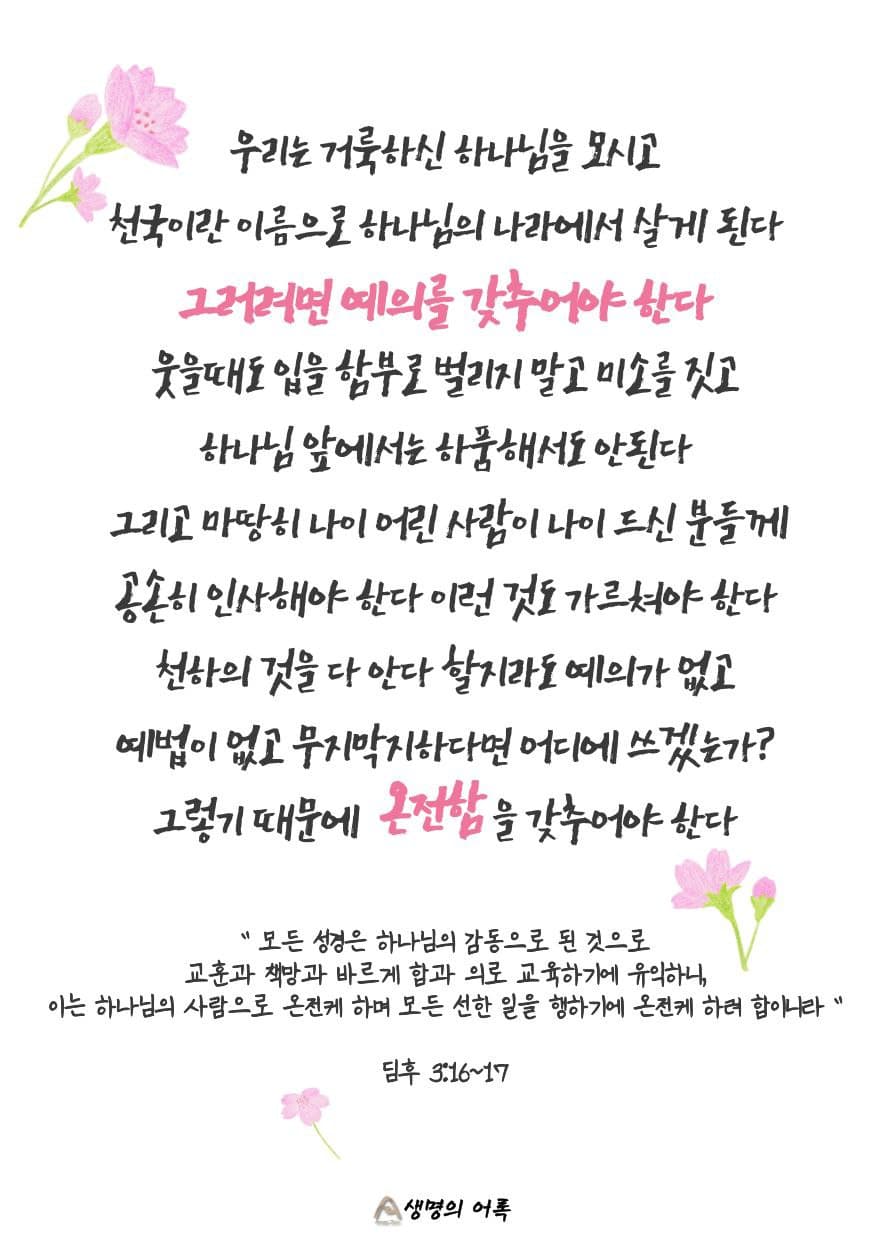 우리는 거룩하신 하나님을 모시고
천국이란 이름으로 하나님의 나라에서 살게 된다
그러려면 예의를 갖추어야 한다
웃을때도 입을 함부로 벌리지 말고 미소를 짓고
하나님 앞에서는 하품해서도 안된다
그리고 마땅히 나이 어린 사람이 나이 드신 분들께
공손히 인사해야 한다 이런 것도 가르쳐야 한다
천하의 것을 다 안다 할지라도 예의가 없고
예법이 없고 무지막지하다면 어디에 쓰겠는가?
그렇기 때문에 온전함을 갖추어야 한다
" 모든 성경은 하나님의 감동으로 된 것으로
교훈과 책망과 바르게 함과 의로 교육하기에 유의하니,
이는 하나님의 사람으로 온전케 하며 모든 선한 일을 행하기에 온전케 하려 함이니라 "
딤후 3:16~17
생명의 어록